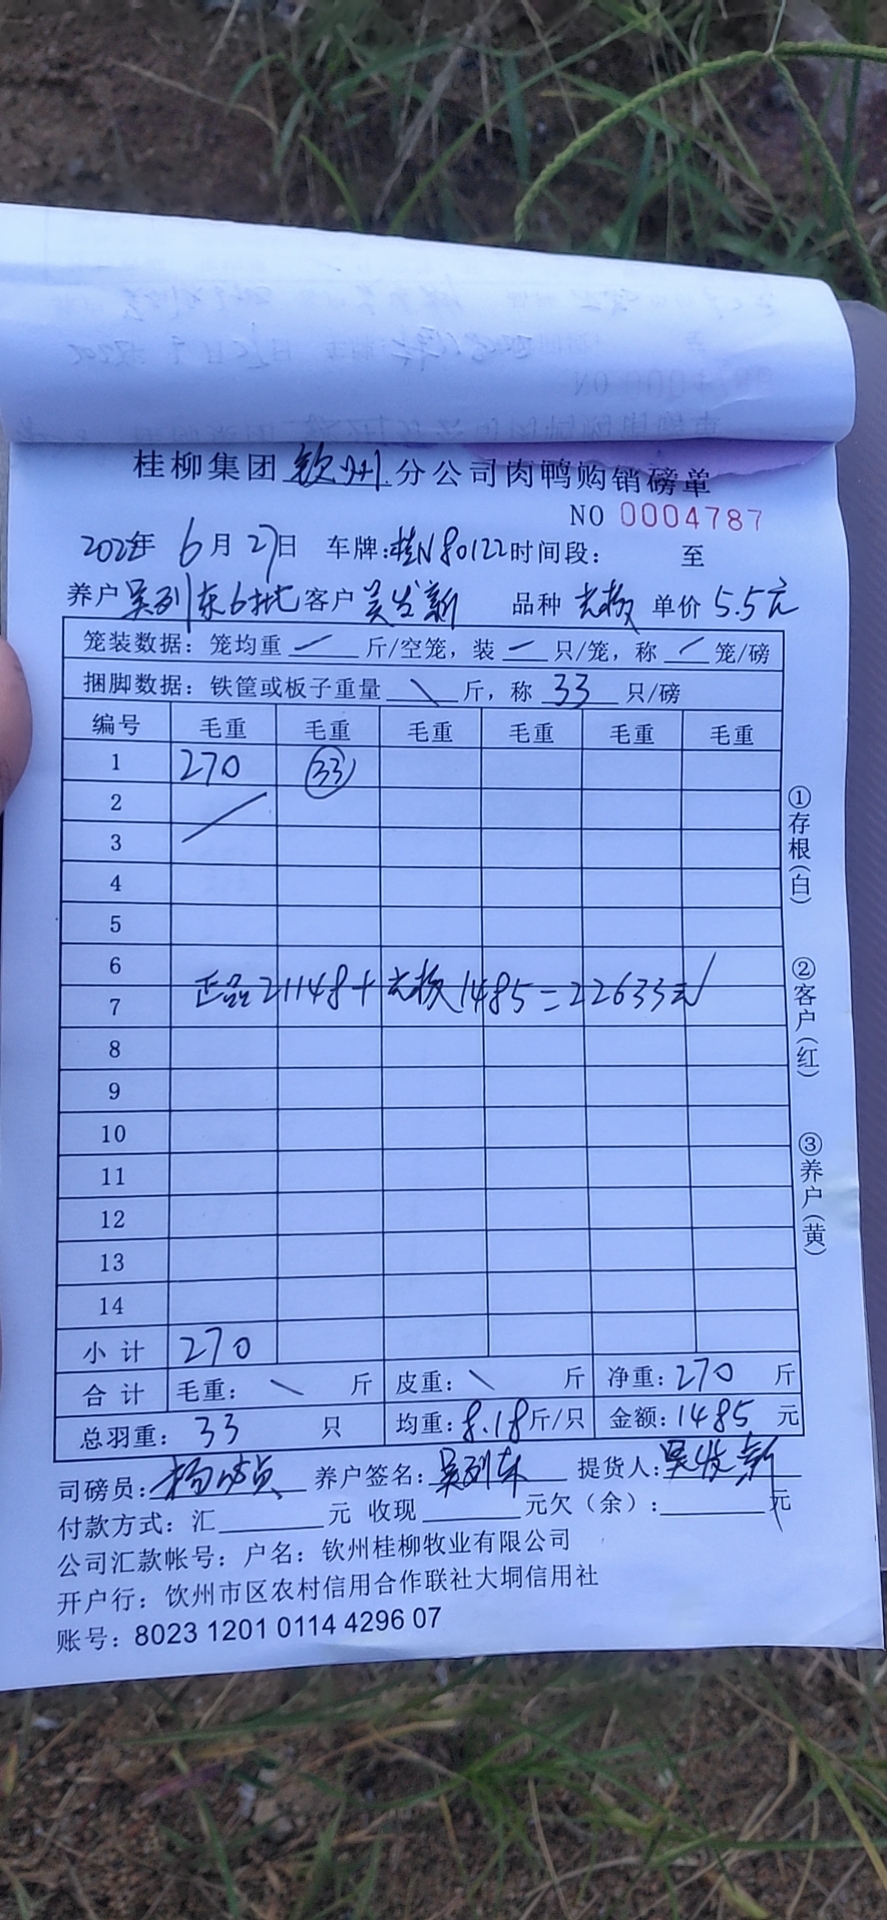 桂柳集团 钦州 分公司肉鸭购销磅单
NO 0004787
2022年 6月27日 车牌:桂N80122 时间段: 至
养户 吴列东6批 客户 吴发新 品种 次极 单价 5.5元
笼装数据：笼均重 / 斤/空笼，装 一 只/笼，称 / 笼/磅
捆脚数据：铁筐或板子重量 \ 斤，称 33 只/磅
编号 毛重 毛重 毛重 毛重 毛重 毛重
1 270 33
2
3
4
5
6
正品21148+次极1485=22633元
7
8
9
10
11
12
13
14
小计 270
合计 毛重： \ 斤 皮重： \ 斤 净重：270 斤
总羽重： 33 只 均重：8.18斤/只 金额：1485 元
司磅员： 养户签名：吴列东 提货人：吴发新
付款方式：汇 元 收现 元欠（余）： 元
公司汇款帐号：户名：钦州桂柳牧业有限公司
开户行：钦州市区农村信用合作联社大垌信用社
账号：8023 1201 0114 4296 07
①存根（白）
②客户（红）
③养户（黄）